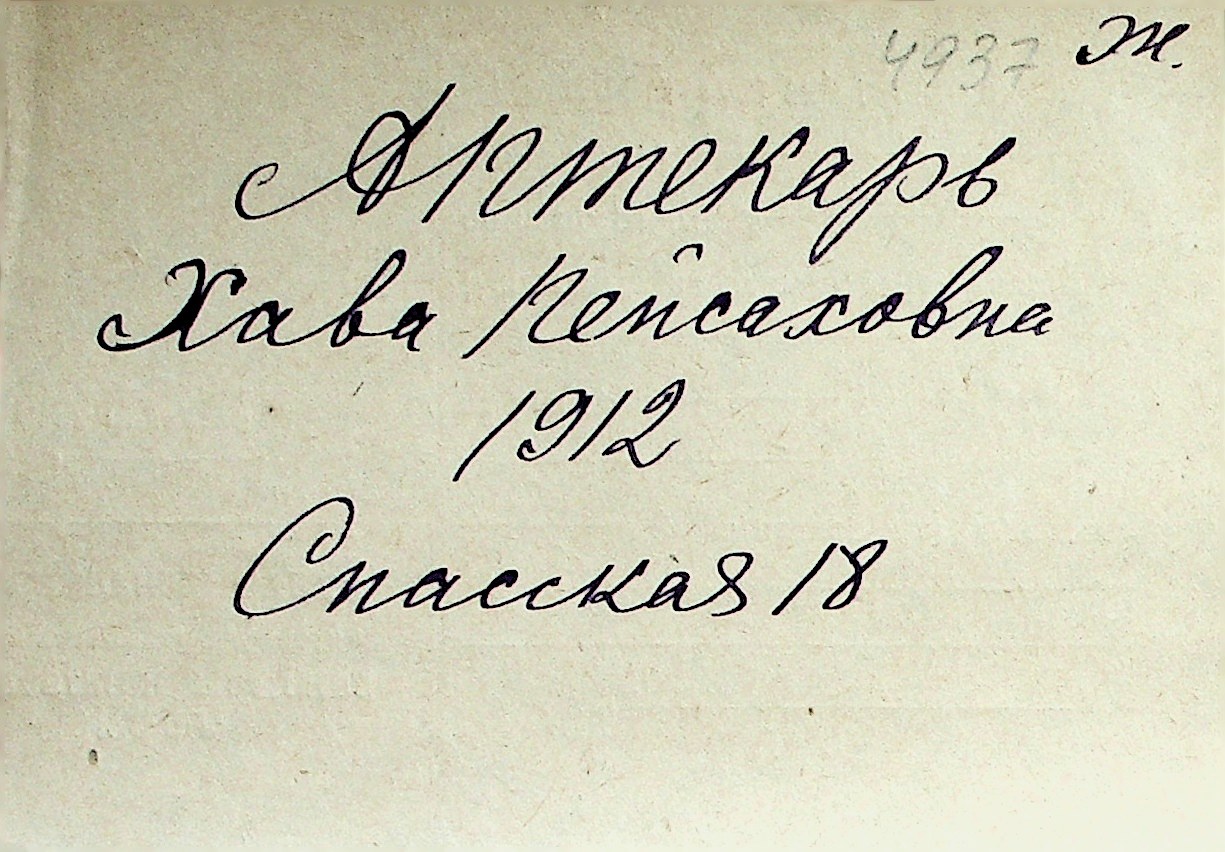 4937 ж.
Аптекарь
Хава Пейсаховна
1912
Спасская 18